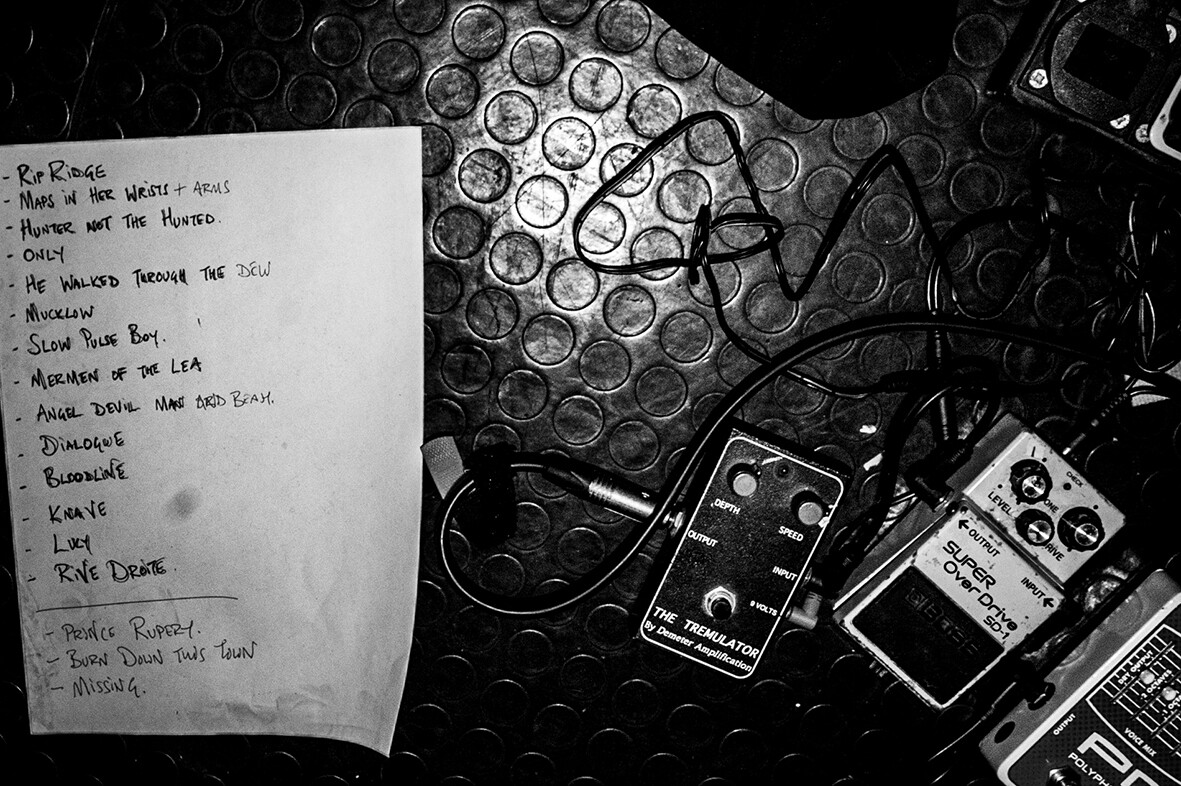 - RIP RIDGE
- MAPS IN HER WRISTS + ARMS
- HUNTER NOT THE HUNTED.
- ONLY
- HE WALKED THROUGH THE DEW
- MUCKLOW
- SLOW PULSE BOY.
- MERMEN OF THE LEA
- ANGEL DEVIL MAN AND BEAM.
- DIALOGUE
- BLOODLINE
- KNAVE
- LUCY
- RIVE DROITE.
- PRINCE RUPERT.
- BURN DOWN THIS TOWN
- MISSING.
DEPTH
SPEED
OUTPUT
INPUT
9 VOLTS
THE TREMULATOR
By Demeter Amplification
CHECK
LEVEL
TONE
DRIVE
OUTPUT
INPUT
SUPER
Over Drive
SD-1
BOSS
DRY OUTPUT
OCTAVE
OUTPUT
VOICE MIX